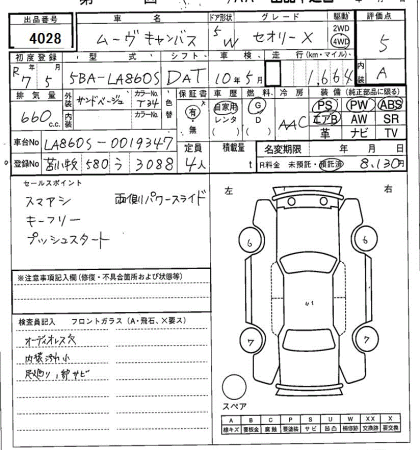 出品番号 車名 ドア形状 グレード 駆動 評価点
4028 ムーヴキャンバス 5 W セオリーX 2WD 4WD 5
初度登録 型式 シフト 車検 走行(km・マイル) 内装
R7年5月 5BA-LA860S DAT 10年5月 1,664 A
排気量 外装 サンドベージュ カラーNo. T34 色替 保証書 有・無 車歴 自家用 レンタ D 燃料 G D 冷房 AAC 装備(純正部品に限る)
660c.c. 内装 カラーNo. PS PW ABS
エアB AW SR
革 ナビ TV
車台No LA860S-0019347 定員 積載量 名変期限 年 月 日
登録No 苫小牧 580 う 3088 4人 t R料金 未預託・預託済 8,130円
セールスポイント
スマアシ 両側パワースライド
キーフリー
プッシュスタート
左 右
6 6
U1
7 7
※注意事項記入欄(修復・不具合箇所および状態等)
検査員記入 フロントガラス(A・飛石、X要ス)
オーディオレス穴
内装汚れ小
足廻り、一部サビ
スペア
A B C P S U W XX X
線キズ 要板金 腐蝕 要塗装 サビ 凹凸 補修跡 交換済 要交換